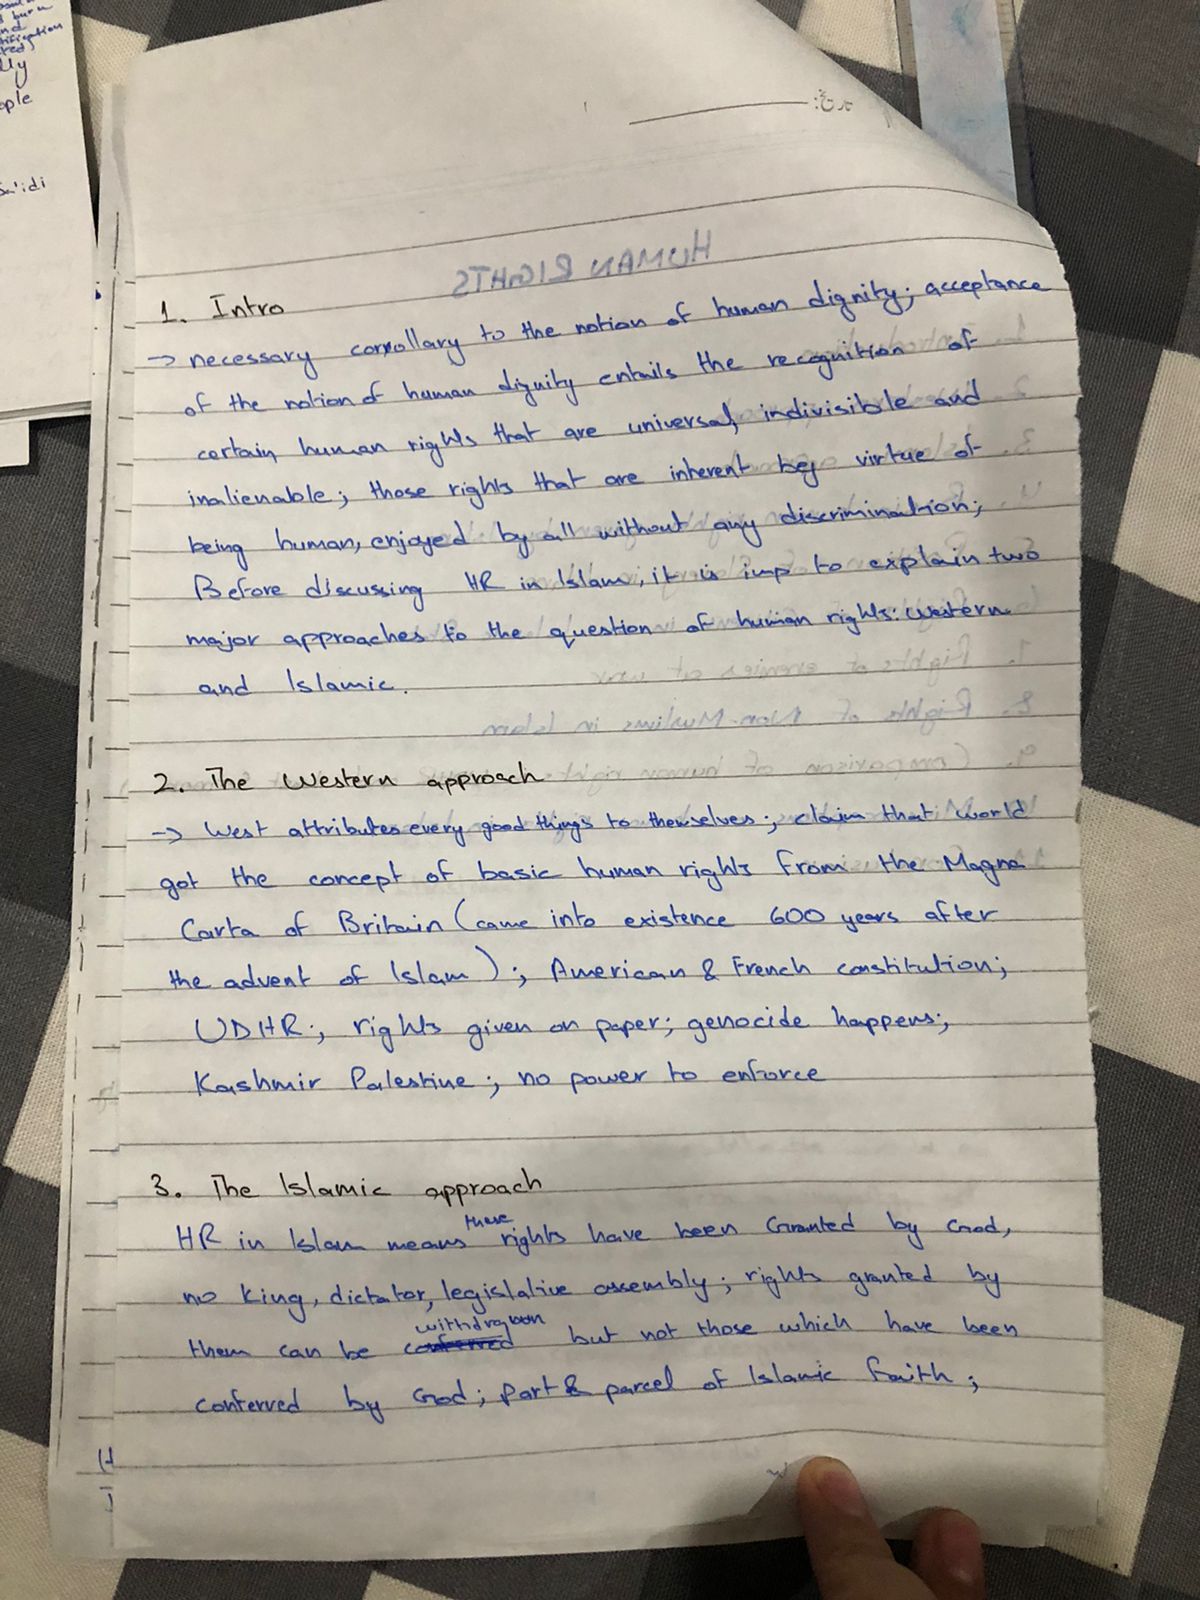 HUMAN RIGHTS
1. Intro
→ necessary corrollary to the notion of human dignity; acceptance
of the notion of human dignity entails the recognition of
certain human rights that are universal, indivisible and
inalienable; those rights that are inherent by virtue of
being human, enjoyed by all without any discrimination;
Before discussing HR in Islam, it is imp to explain two
major approaches to the question of human rights: Western
and Islamic.
2. The Western approach
→ West attributes every good things to themselves; claim that world
got the concept of basic human rights from the Magna
Carta of Britain (came into existence 600 years after
the advent of Islam); American & French constitution;
UDHR; rights given on paper; genocide happens;
Kashmir Palestine; no power to enforce
3. The Islamic approach
HR in Islam means these rights have been Granted by God,
no King, dictator, legislative assembly; rights granted by
them can be withdrawn but not those which have been
conferred by God; part & parcel of Islamic faith;